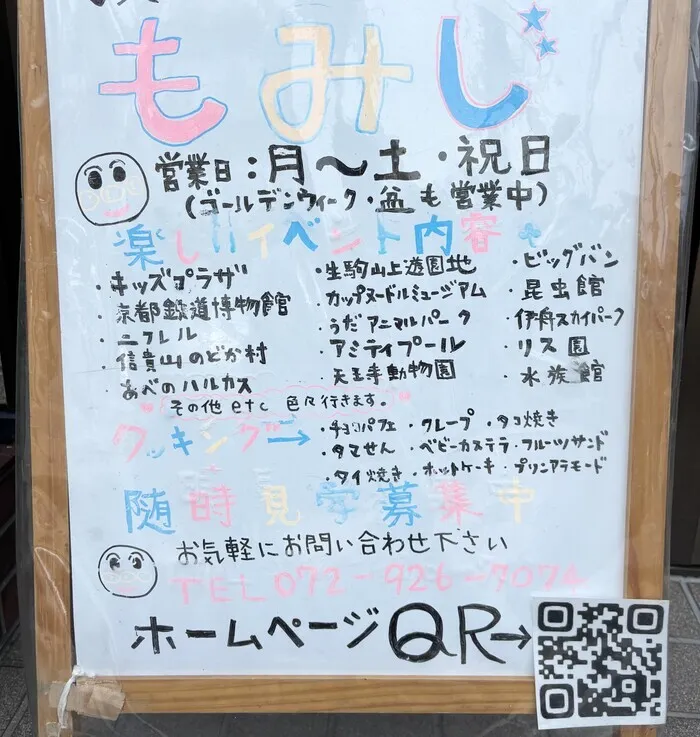 もみじ
営業日：月〜土・祝日
(ゴールデンウィーク・盆も営業中)
楽しいイベント内容
・キッズプラザ
・京都鉄道博物館
・ニフレル
・信貴山のどか村
・あべのハルカス
・生駒山上遊園地
・カップヌードルミュージアム
・うだアニマルパーク
・アミティプール
・天王寺動物園
・ビッグバン
・昆虫館
・伊丹スカイパーク
・リス園
・水族館
その他etc 色々行きます。
クッキング→
・チョコパフェ ・クレープ ・タコ焼き
・タマせん ・ベビーカステラ ・フルーツサンド
・タイ焼き ・ホットケーキ ・プリンアラモード
随時見学募集中
お気軽にお問い合わせ下さい
TEL072-926-7074
ホームページQR→